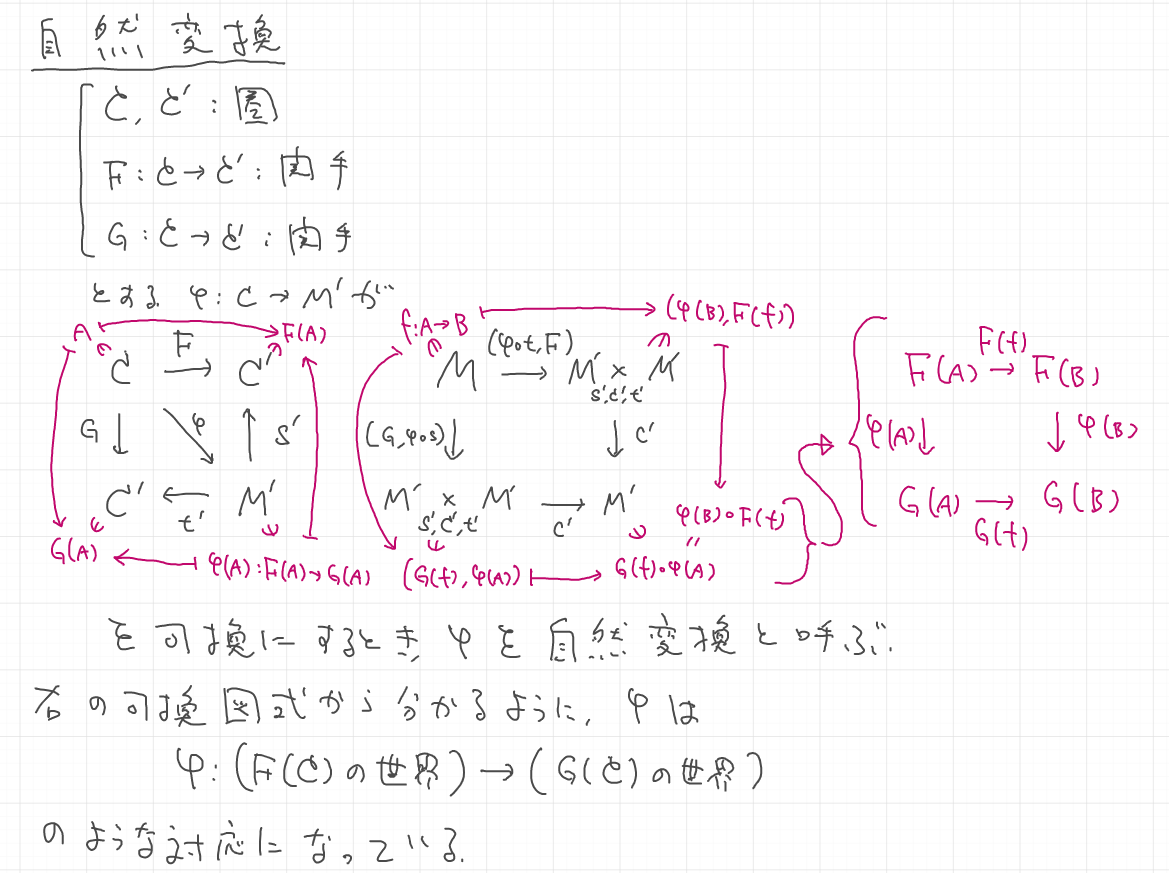 自然変換
𝒞, 𝒞′ : 圏
F : 𝒞 → 𝒞′ : 関手
G : 𝒞 → 𝒞′ : 関手
とする. φ : C → M′ が
A ↦ F(A)
C F→ C′
G ↓ φ ↘ ↑ s′
C′ ←t′ M′
G(A) ← φ(A) : F(A) → G(A)
f : A → B ↦ (φ(B), F(f))
M (φ∘t, F)→ M′ × M′
s′, C′, t′
(G, φ∘s) ↓ ↓ c′
M′ × M′ → M′
s′, C′, t′ c′
φ(B)∘F(f)
〃
(G(f), φ(A)) ↦ G(f)∘φ(A)
F(f)
F(A) → F(B)
φ(A) ↓ ↓ φ(B)
G(A) → G(B)
G(f)
を可換にするとき, φ を自然変換と呼ぶ.
右の可換図式から分かるように, φ は
φ : (F(𝒞) の世界) → (G(𝒞) の世界)
のような対応になっている.